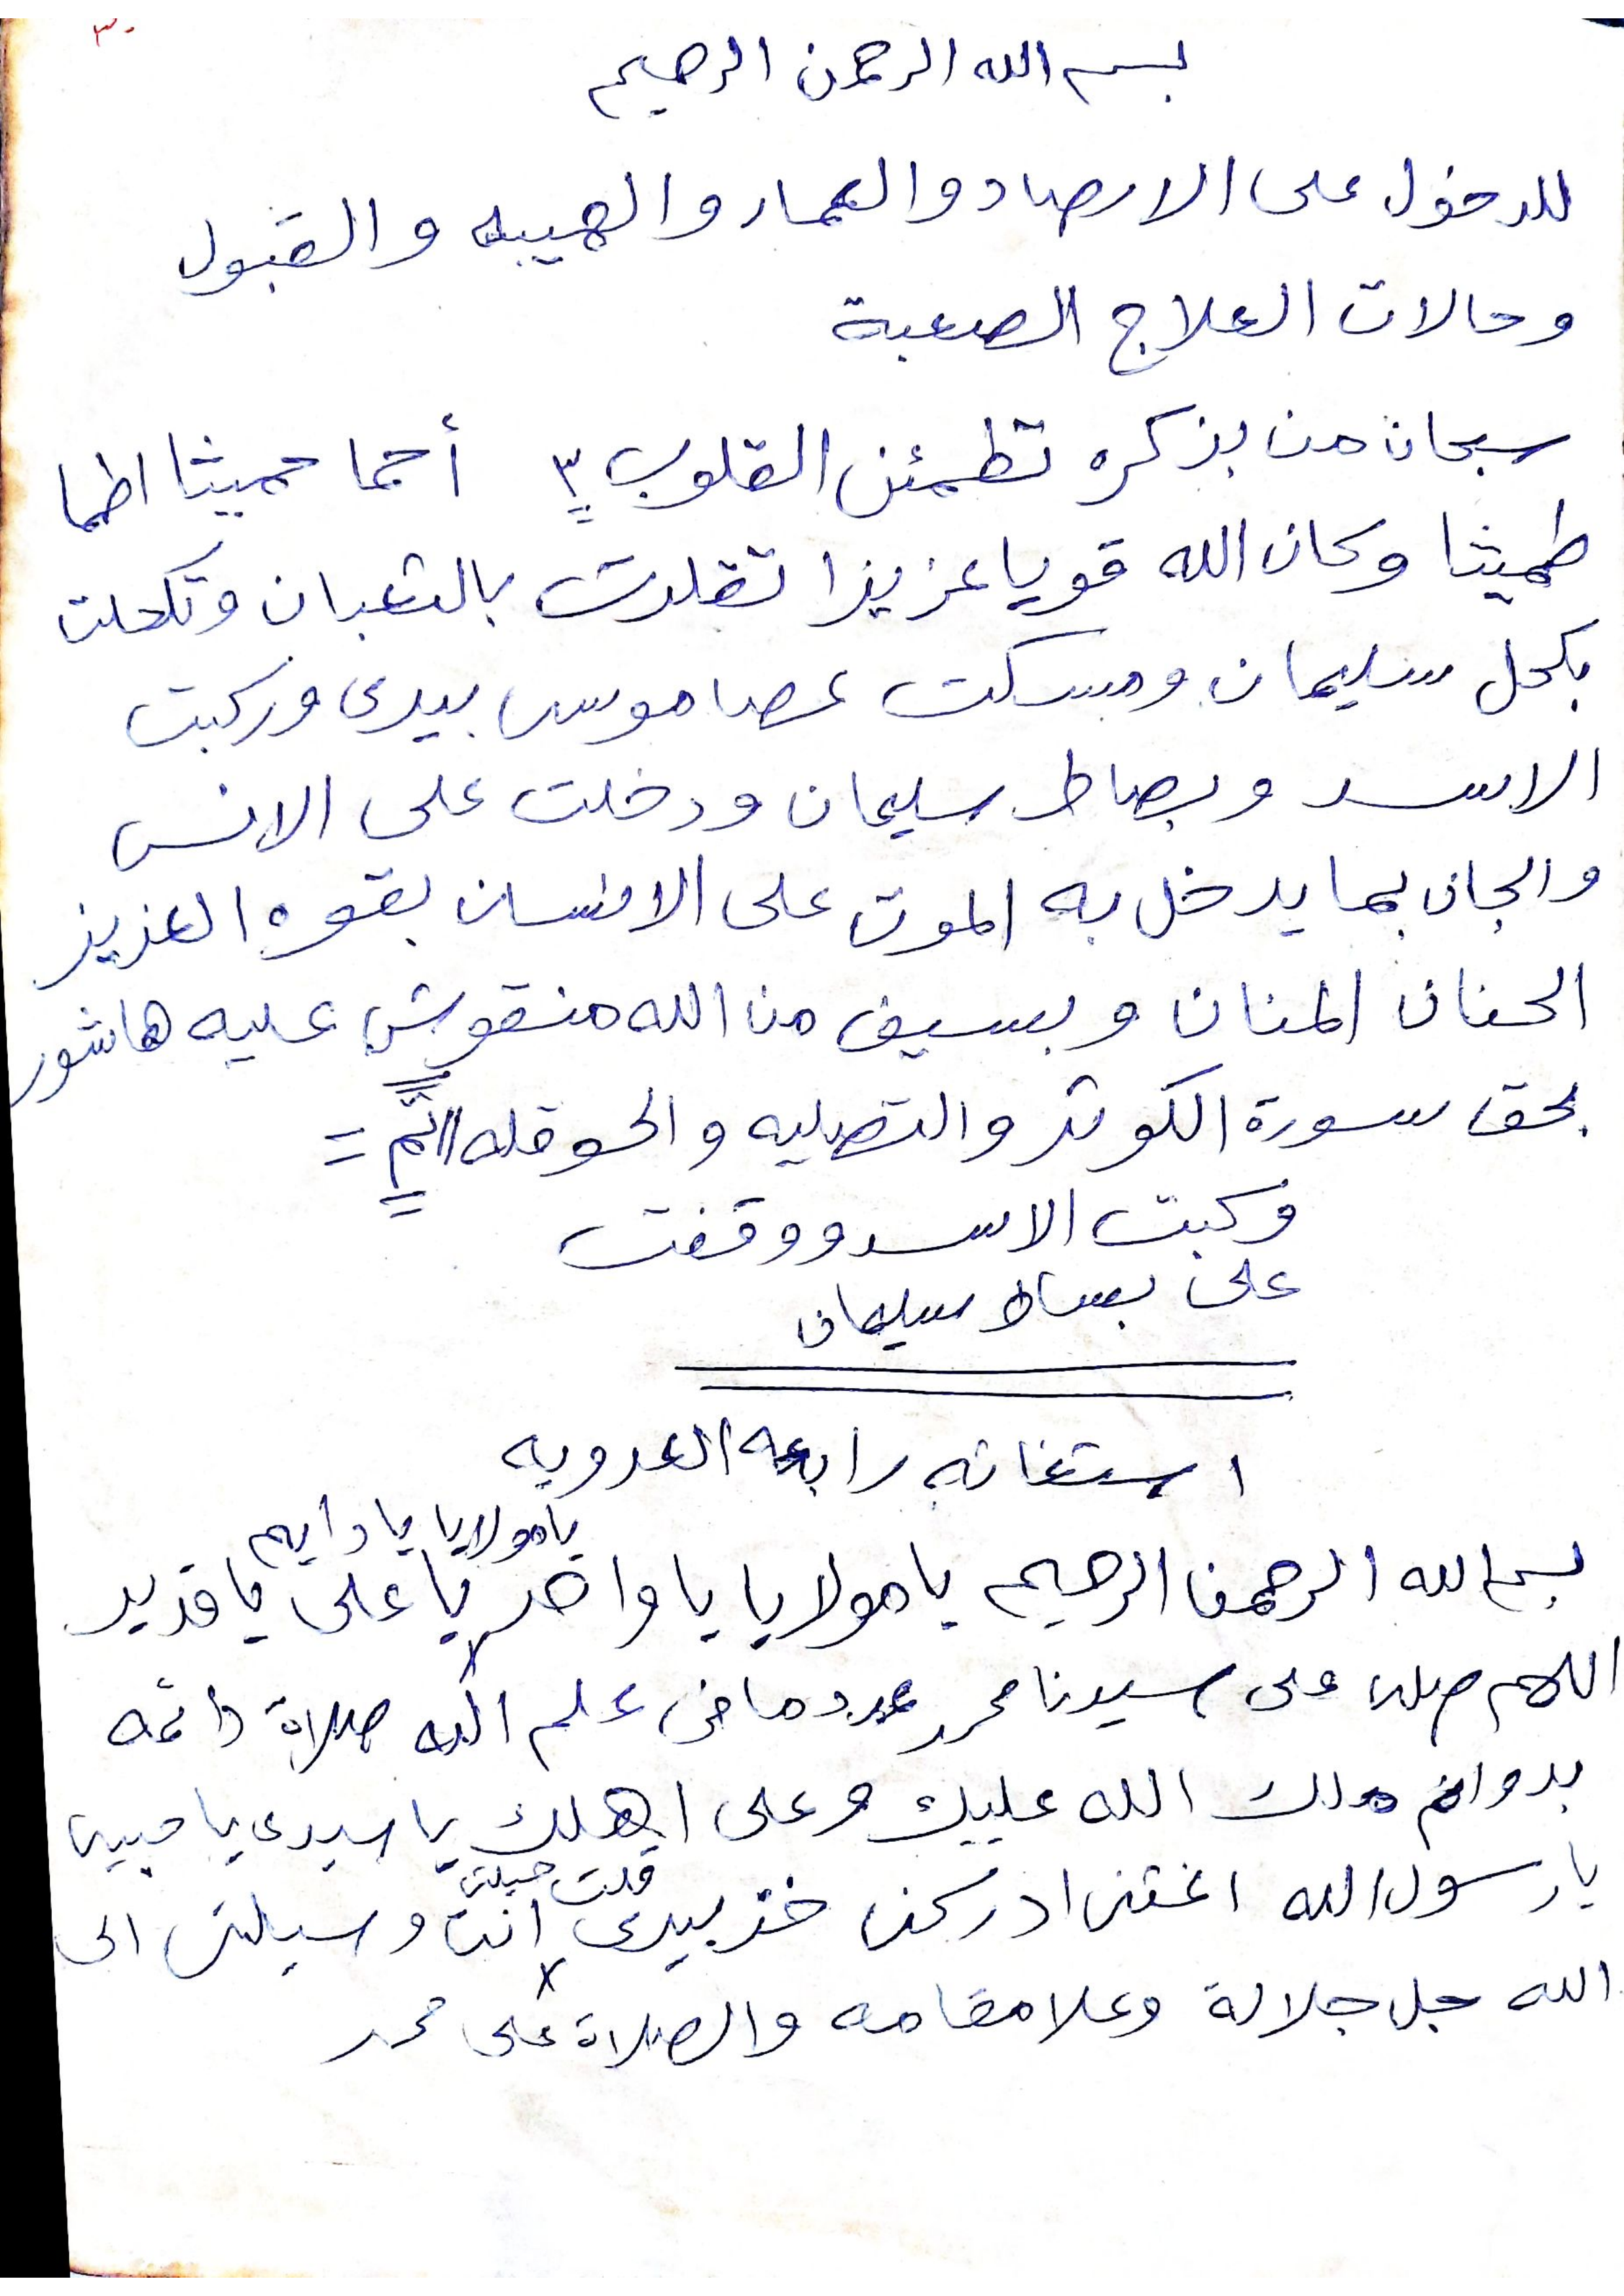 ٣٠
بسم الله الرحمن الرحيم
للدخول على الارصاد والعمار والهيبه والقبول
وحالات العلاج الصعبة
سبحان من بذكره تطمئن القلوب ٣ أحما حميثا اطما
طميثا وكان الله قويا عزيزا تقلدت بالثعبان وتكحلت
بكحل سليمان ومسكت عصا موسى بيدى وركبت
الاسد وبصاط سليمان ودخلت على الانس
والجان بما يدخل به الموت على الانسان بقوه العزيز
الحنان المنان وبسيف من الله منقوش عليه هاشور
بحق سورة الكوثر والتصليه والحوقله // تم =
ركبت الاسد ووقفت
على بساط سليمان
استغاثه رابعه العدويه
يا مولايا يا دايم
بسم الله الرحمن الرحيم يا مولايا يا واحد يا على يا قدير
اللهم صلى على سيدنا محمد عدد ما فى علم الله صلاة دائمه
بدوام ملك الله عليك وعلى اهلك يا سيدى يا حبيبى
قلت حيلتى
يا رسول الله اغثنى ادركنى خذ بيدى انت وسيلتى الى
الله جل جلالة وعلا مقامه والصلاة على محمد